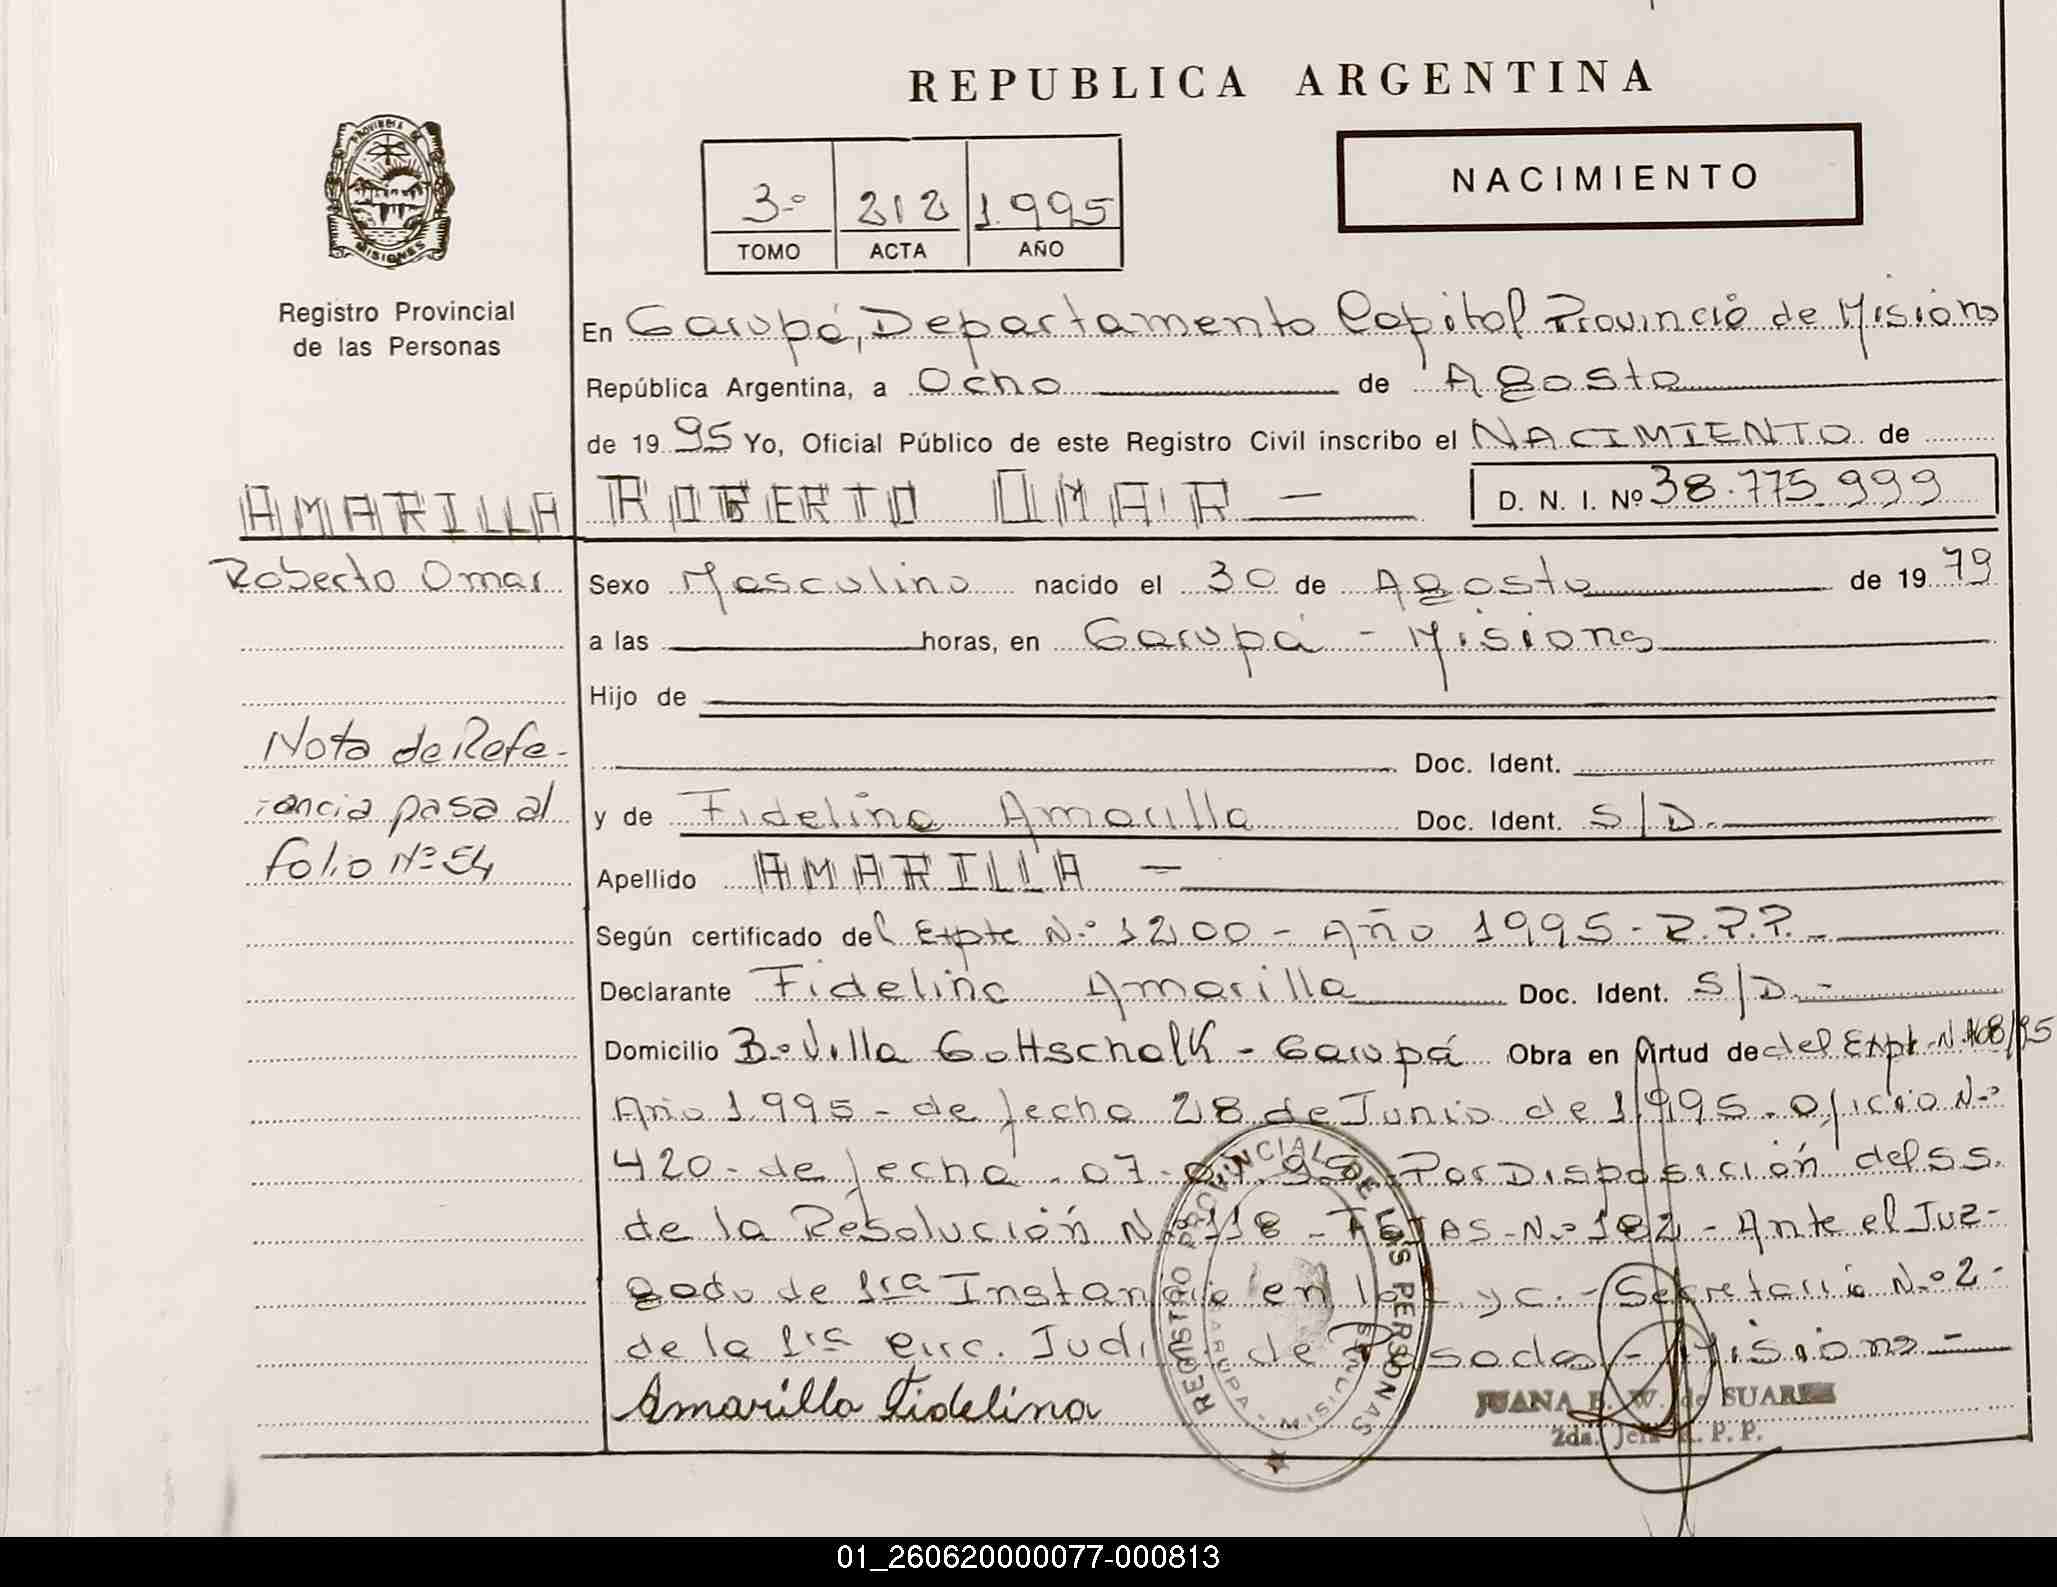 REPUBLICA ARGENTINA
NACIMIENTO
3º 212 1.995
TOMO ACTA AÑO
PROVINCIA DE
MISIONES
Registro Provincial
de las Personas
En Garupá, Departamento Capital Provincia de Misiones
República Argentina, a Ocho de Agosto
de 19 95 Yo, Oficial Público de este Registro Civil inscribo el NACIMIENTO de
AMARILLA ROBERTO OMAR — D. N. I. Nº 38.775.999
Roberto Omar
Sexo Masculino nacido el 30 de Agosto de 19 79
a las horas, en Garupá - Misiones
Hijo de
Nota de Refe-
rencia pasa al
folio Nº 54
Doc. Ident.
y de Fidelina Amarilla Doc. Ident. S/D.
Apellido AMARILLA —
Según certificado del Expte Nº 1200 - Año 1995 - R.P.P. -
Declarante Fidelina Amarilla Doc. Ident. S/D. -
Domicilio Bº Villa Gottschalk - Garupá Obra en Virtud de del Expte Nº 168/95
Año 1.995 - de fecha 28 de Junio de 1.995. Oficio Nº
420 - de fecha 07- Por Disposición del S.S.
de la Resolución Nº 118 - FOJAS - Nº 182 - Ante el Juz-
gado de 1ra Instancia en y C. - Secretaria Nº 2 -
de la 1ra Circ. Judi de Posadas - Misiones —
Amarilla Fidelina
REGISTRO PROVINCIAL DE LAS PERSONAS
GARUPA - MISIONES
JUANA E. W. de SUAREZ
2da. Jefa R. P. P.
01_260620000077-000813